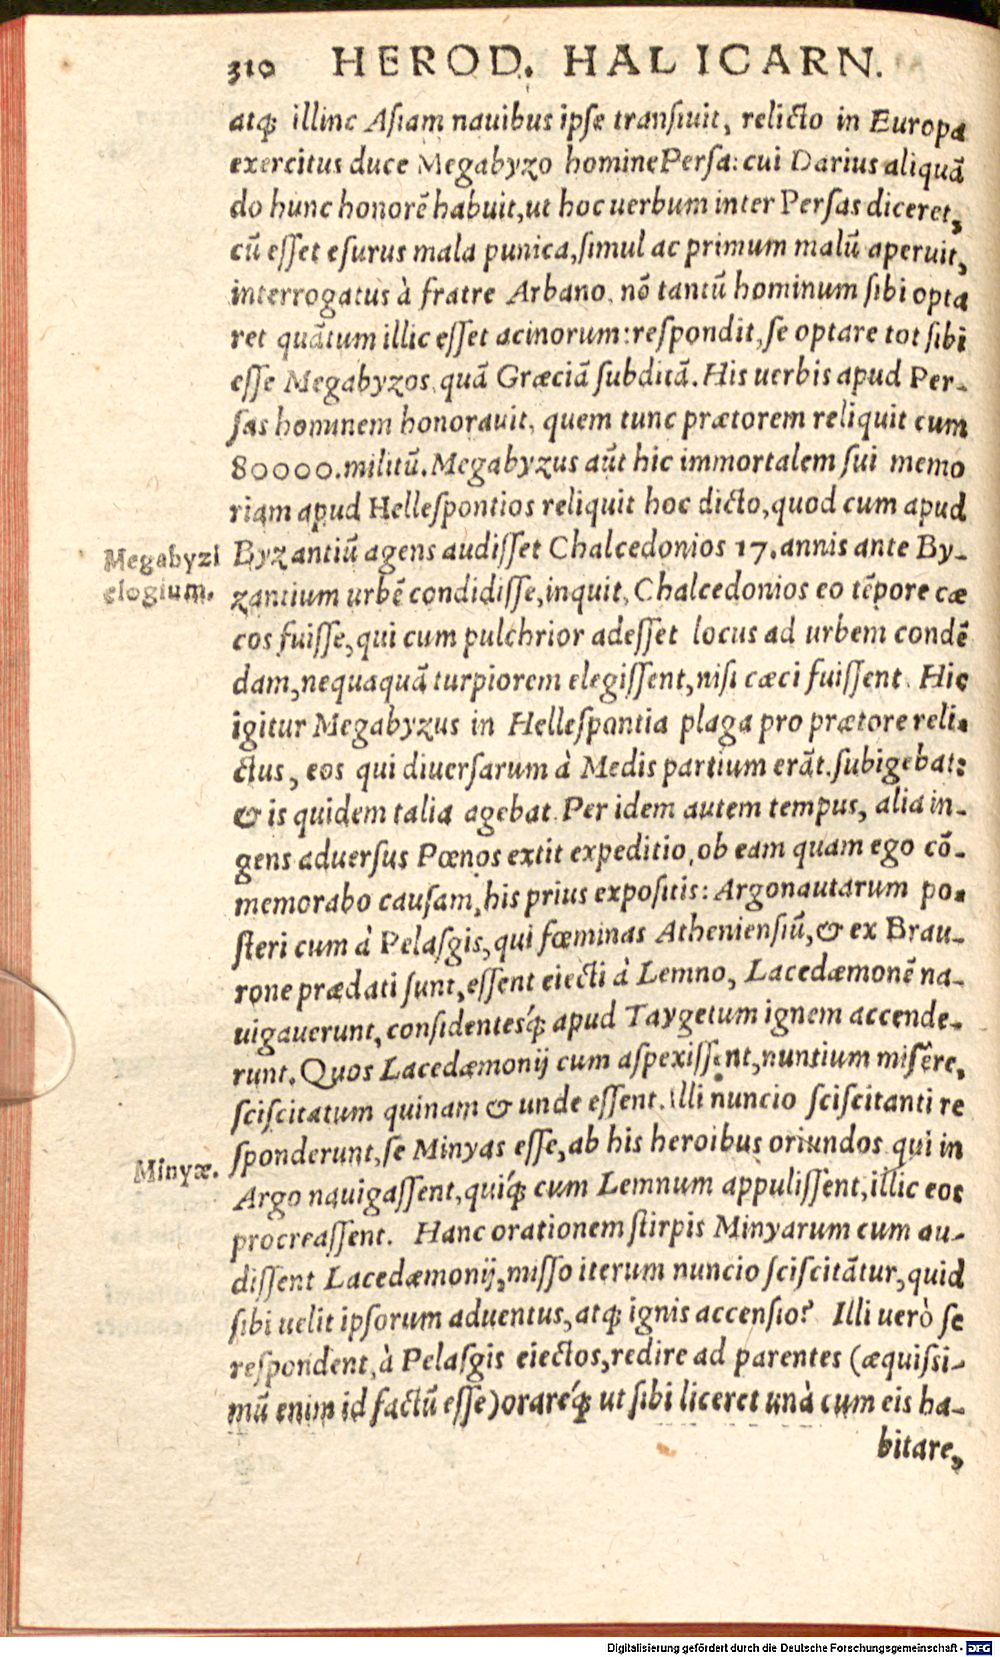 310 HEROD. HALICARN.
atq; illinc Asiam nauibus ipse transiuit, relicto in Europa
exercitus duce Megabyzo homine Persa: cui Darius aliquã
do hunc honorẽ habuit, ut hoc uerbum inter Persas diceret,
cũ esset esurus mala punica, simul ac primum malũ aperuit,
interrogatus à fratre Arbano, nõ tantũ hominum sibi opta
ret quãtum illic esset acinorum: respondit, se optare tot sibi
esse Megabyzos, quã Græciã subditã. His uerbis apud Per-
sas hominem honorauit, quem tunc prætorem reliquit cum
80000. militũ. Megabyzus aũt hic immortalem sui memo
riam apud Hellespontios reliquit hoc dicto, quod cum apud
Byzantiũ agens audisset Chalcedonios 17. annis ante By-
Megabyzi
elogium.
zantium urbẽ condidisse, inquit, Chalcedonios eo tẽpore cæ
cos fuisse, qui cum pulchrior adesset locus ad urbem condẽ
dam, nequaquã turpiorem elegissent, nisi cæci fuissent. Hic
igitur Megabyzus in Hellespontia plaga pro prætore reli-
ctus, eos qui diuersarum à Medis partium erãt. subigebat:
& is quidem talia agebat. Per idem autem tempus, alia in-
gens aduersus Pœnos extit expeditio, ob eam quam ego cõ-
memorabo causam, his prius expositis: Argonautarum po-
steri cum à Pelasgis, qui fœminas Atheniensiũ, & ex Brau-
rone prædati sunt, essent eiecti à Lemno, Lacedæmonẽ na-
uigauerunt, considentesq́; apud Taygetum ignem accende-
runt. Quos Lacedæmonij cum aspexissent, nuntium misêre,
sciscitatum quinam & unde essent. Illi nuncio sciscitanti re
sponderunt, se Minyas esse, ab his heroibus oriundos qui in
Minyæ.
Argo nauigassent, quiq́; cum Lemnum appulissent, illic eos
procreassent. Hanc orationem stirpis Minyarum cum au-
dissent Lacedæmonij, misso iterum nuncio sciscitãtur, quid
sibi uelit ipsorum aduentus, atq; ignis accensio? Illi uerò se
respondent, à Pelasgis eiectos, redire ad parentes (æquissi-
mũ enim id factũ esse) orareq́; ut sibi liceret unà cum eis ha-
bitare,
Digitalisierung gefördert durch die Deutsche Forschungsgemeinschaft - DFG